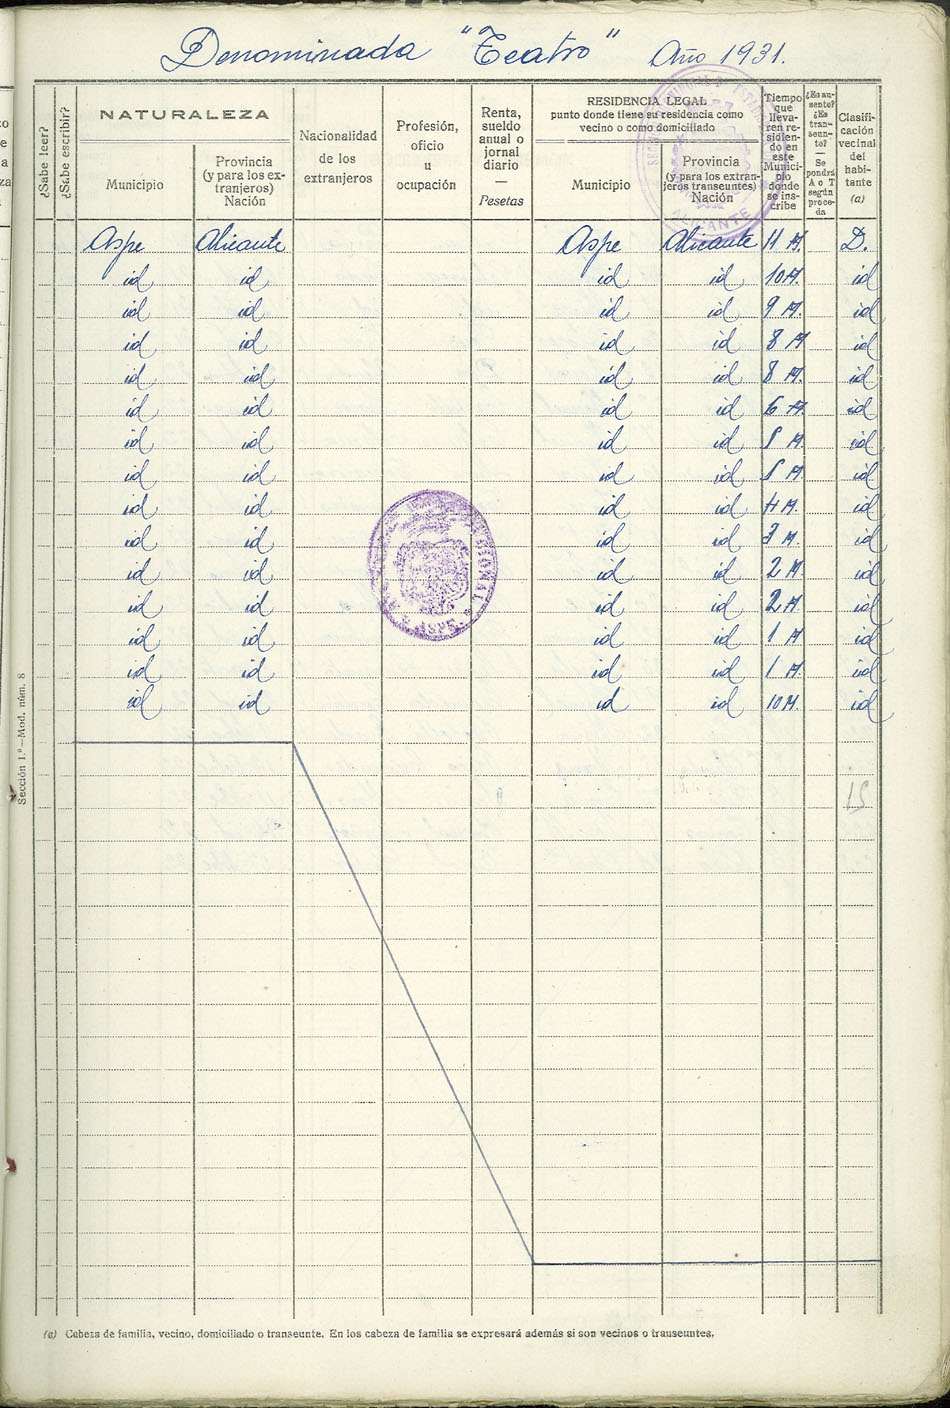 Denominada "Teatro" Año 1931.
¿Sabe leer?
¿Sabe escribir?
NATURALEZA
Municipio
Provincia
(y para los ex-
tranjeros)
Nación
Nacionalidad
de los
extranjeros
Profesión,
oficio
u
ocupación
Renta,
sueldo
anual o
jornal
diario
—
Pesetas
RESIDENCIA LEGAL
punto donde tiene su residencia como
vecino o como domiciliado
Municipio
Provincia
(y para los extran-
jeros transeuntes)
Nación
Tiempo
que
lleva-
ren re-
sidien-
do en
este
Munici-
pio
donde
se ins-
cribe
¿Es au-
sente?
¿Es
tran-
seun-
te?
—
Se
pondrá
A o T
según
proce-
da
Clasifi-
cación
vecinal
del
habi-
tante
(a)
Aspe Alicante Aspe Alicante 11 M. D.
id id id id 10 M. id
id id id id 9 M. id
id id id id 8 M id
id id id id 8 M. id
id id id id 6 M. id
id id id id 5 M. id
id id id id 5 M. id
id id id id 4 M. id
id id id id 3 M. id
id id id id 2 M. id
id id id id 2 M. id
id id id id 1 M id
id id id id 1 M. id
id id id id 10 M. id
ALICANTE
ASPE
Sección 1.ª—Mod. núm. 8
(a) Cabeza de familia, vecino, domiciliado o transeunte. En los cabeza de familia se expresará además si son vecinos o transeuntes.